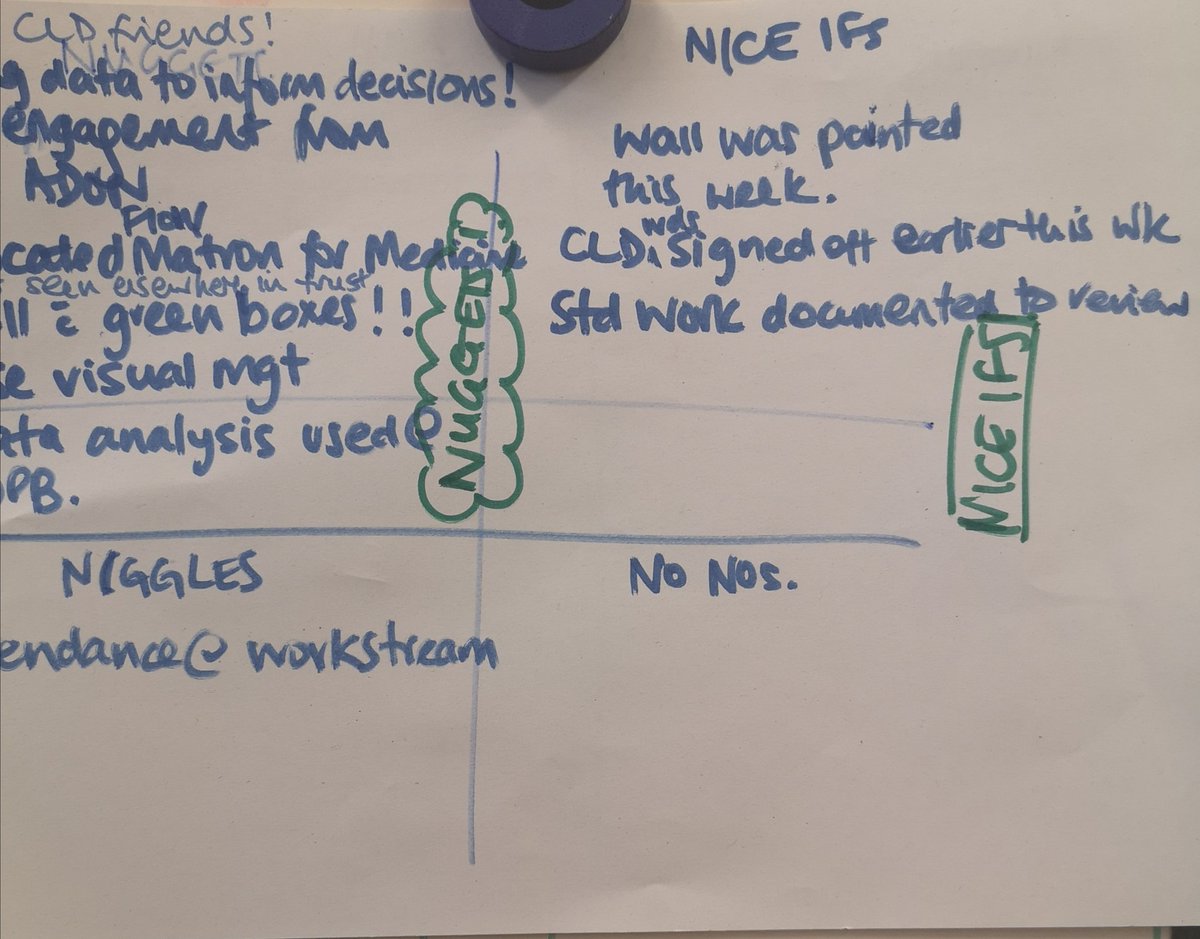 CLD fiends!
NUGGETS
g data to inform decisions!
engagement from
ADON
Flow
cated Matron for Medicine
seen elsewhere in trust
ll c̄ green boxes!!
se visual mgt
ata analysis used @
OPB.
NUGGETS
NICE IFS
Wall was painted
this week.
was
CLD signed off earlier this wk
Std work documented to review
NICE IFS
NIGGLES
endance @ workstream
NO NOS.